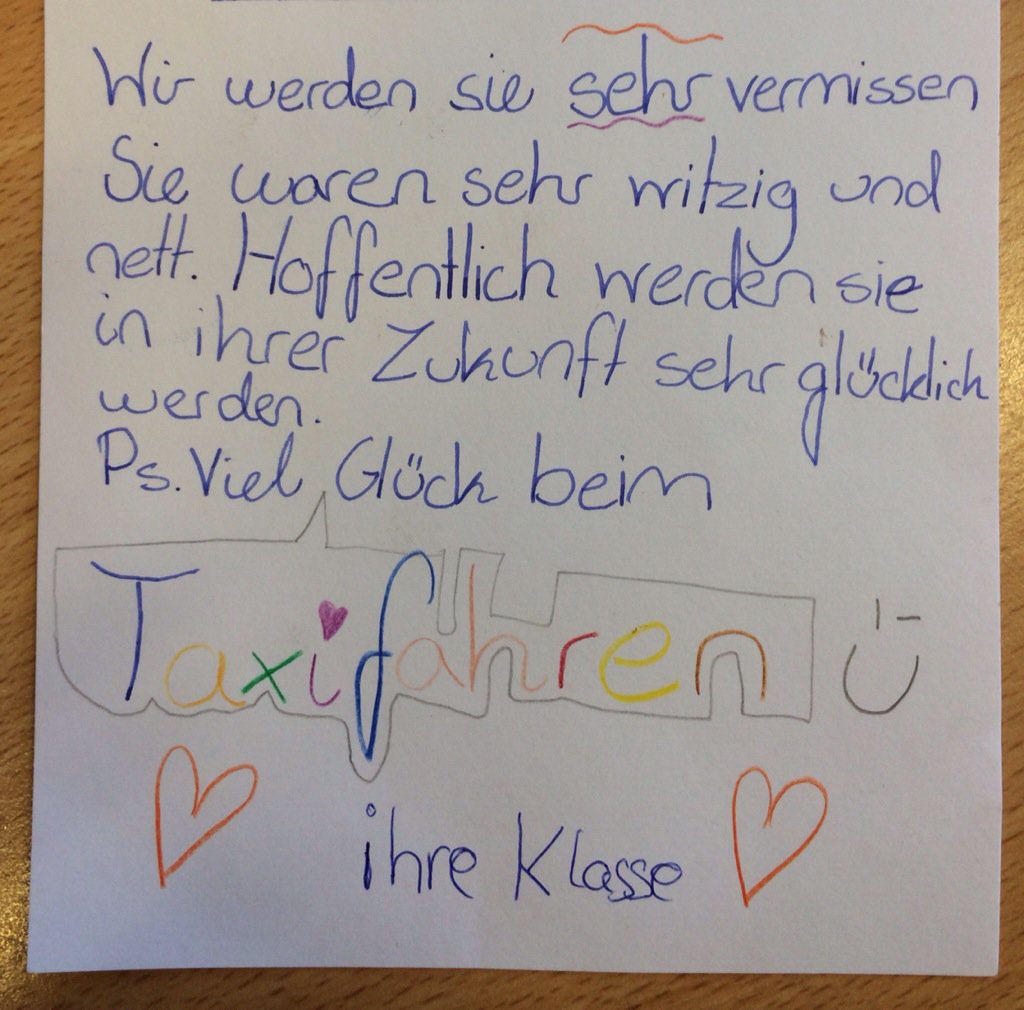 Wir werden sie sehr vermissen
Sie waren sehr witzig und
nett. Hoffentlich werden sie
in ihrer Zukunft sehr glücklich
werden.
Ps. Viel Glück beim
Taxifahren
ihre Klasse